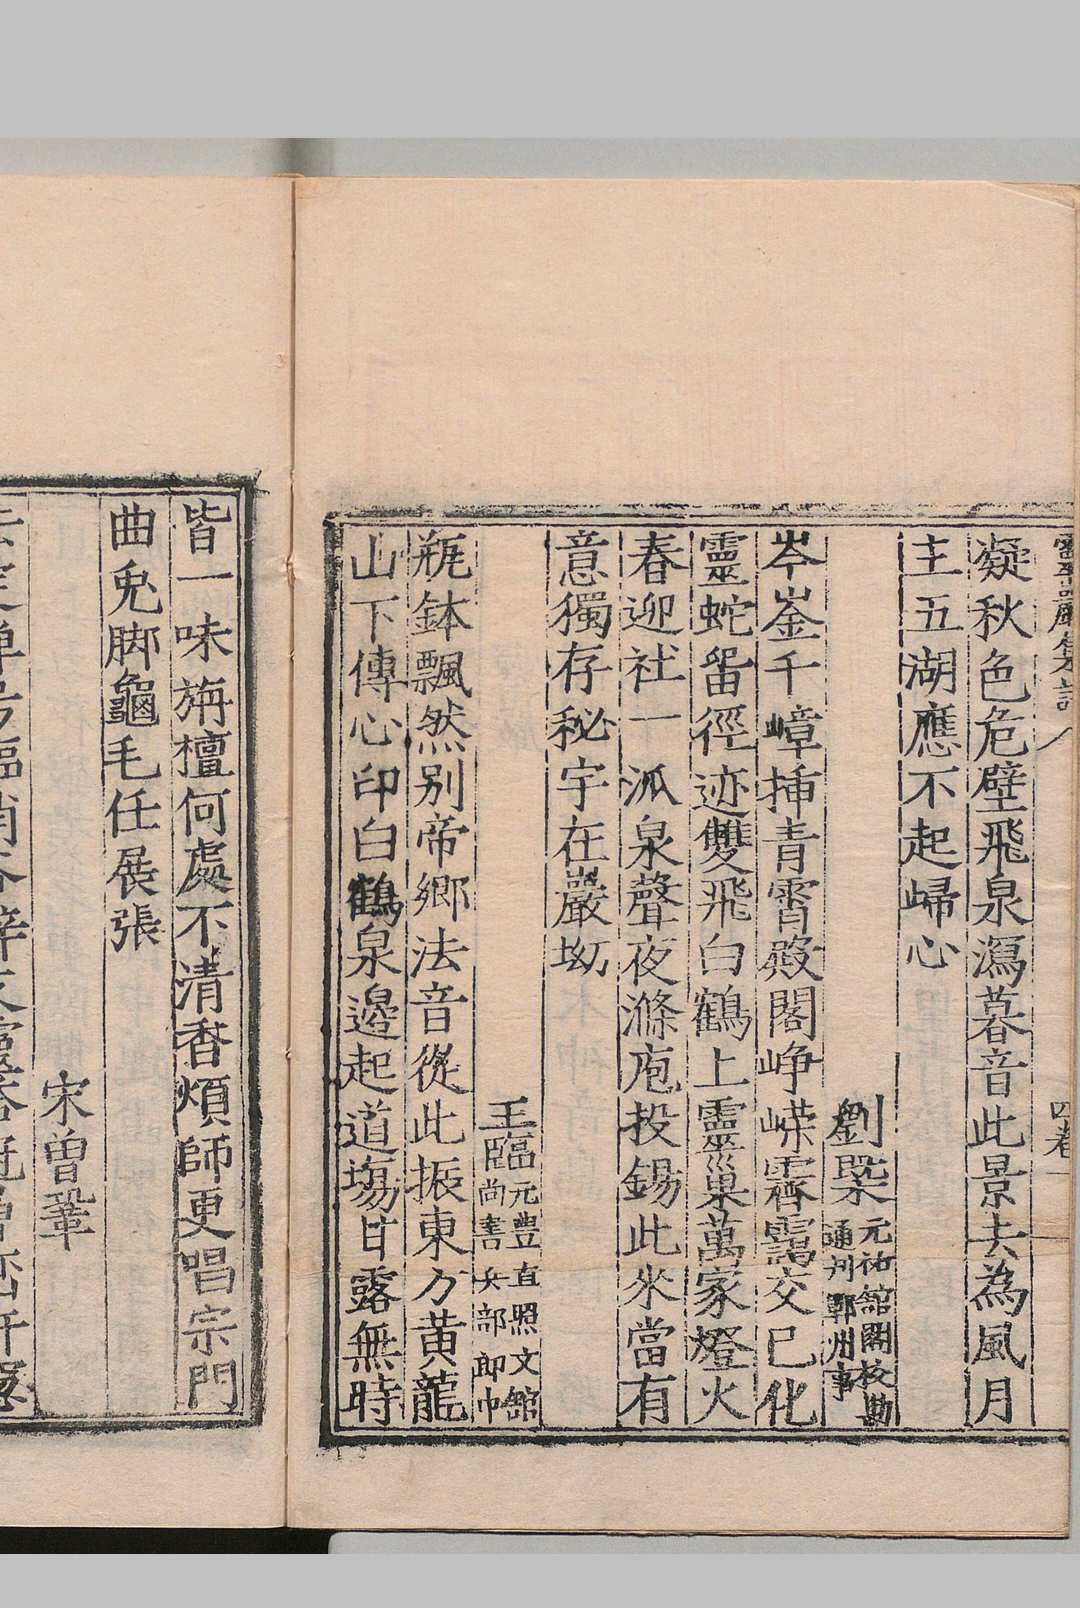 四卷一
凝秋色危壁飛泉瀉暮音此景去為風月
主五湖應不起歸心
劉槩元祐舘閣校勘通判鄆州事
岑崟千嶂揷青霄殿閣崢嶸霽靄交已化
靈蛇畱徑迹雙飛白鶴上靈巢萬家燈火
春迎社一派泉聲夜滌庖投錫此來當有
意獨存秘宇在巖坳
王臨元豊直照文舘尚書兵部郎中
瓶鉢飄然别帝鄉法音從此振東方黃龍
山下傳心印白鶴泉邊起道塲甘露無時
皆一味旃檀何處不清香煩師更唱宗門
曲兎脚龜毛任展張
宋曽鞏